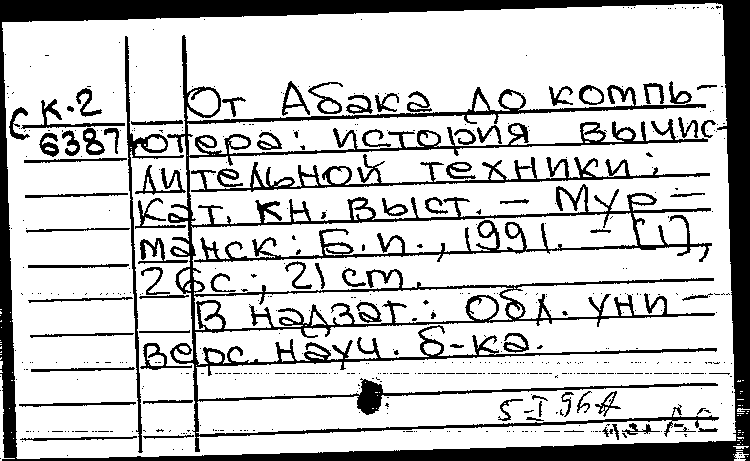 С К-2
6387
От Абака до компь-
ютера: история вычис-
лительной техники:
Кат. кн. выст. - Мур-
манск: Б.и., 1991. - [1],
26с.; 21 cm.
В надзаг.: Обл. уни-
верс. науч. б-ка.
5-I 96
АС